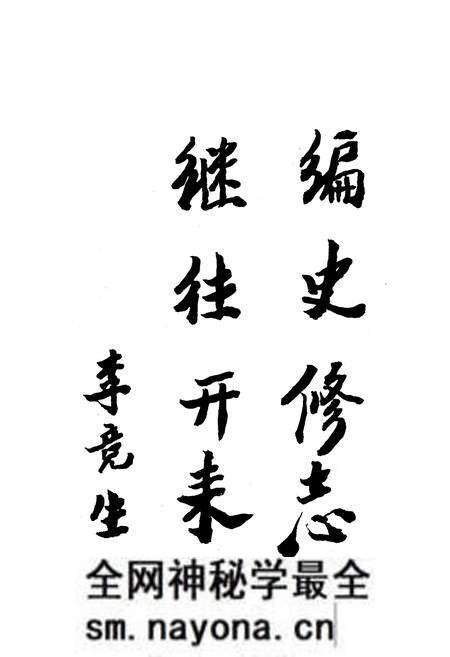 编史修志
继往开来
李竟生
全网神秘学最全
sm.nayona.cn